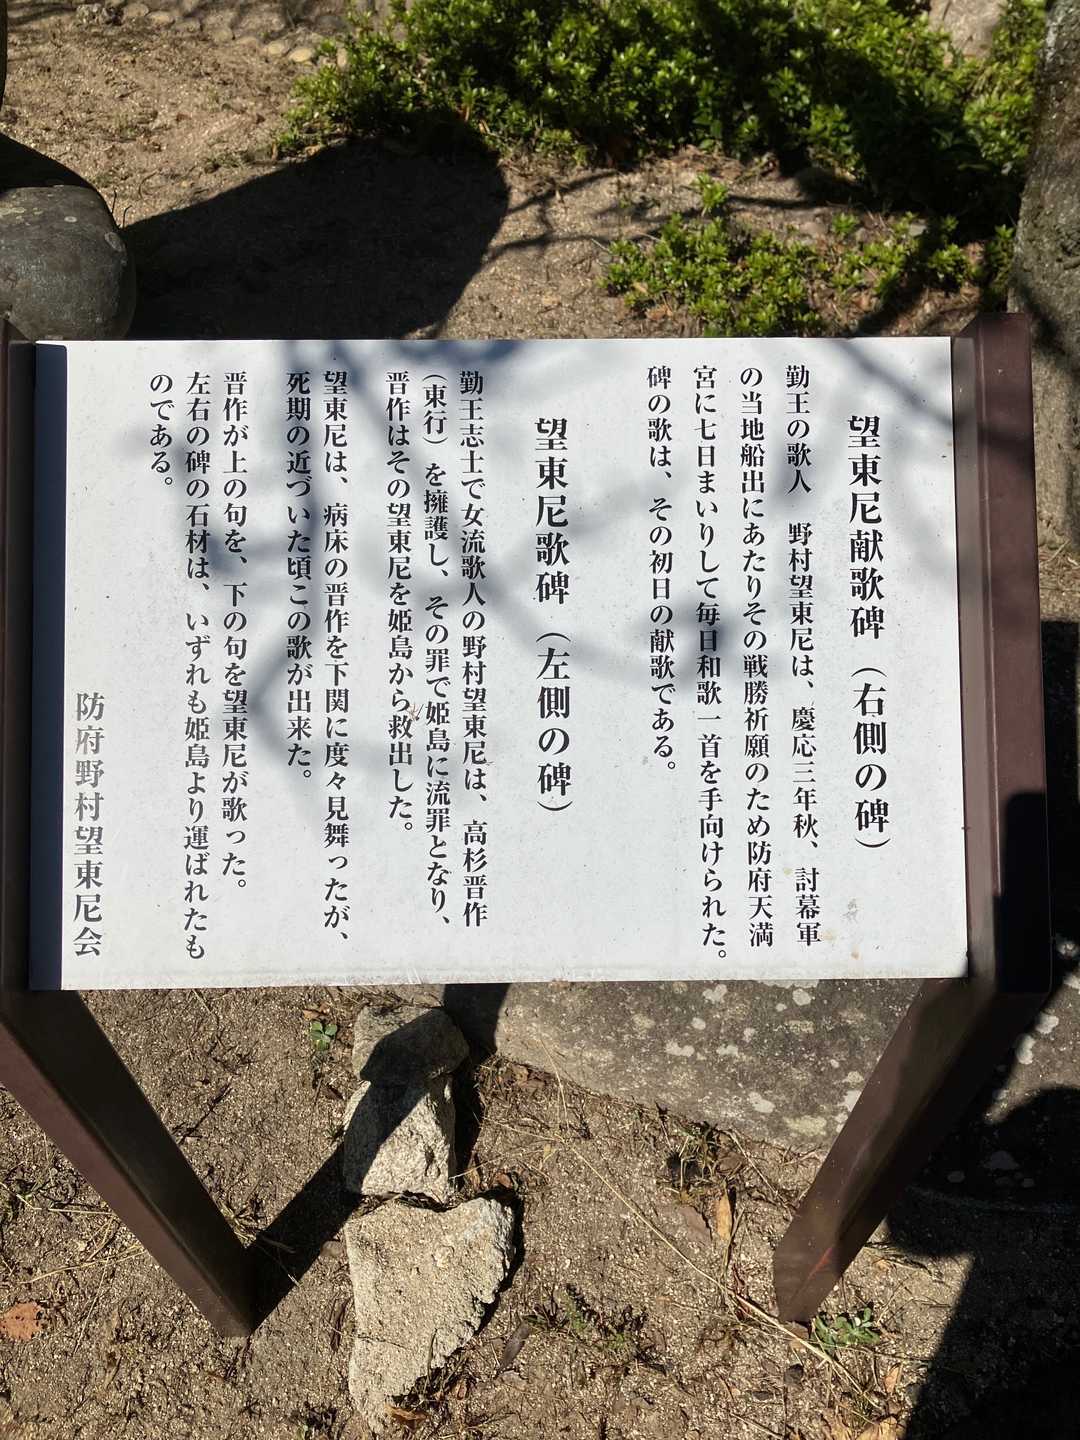 望東尼献歌碑（右側の碑）
勤王の歌人　野村望東尼は、慶応三年秋、討幕軍
の当地船出にあたりその戦勝祈願のため防府天満
宮に七日まいりして毎日和歌一首を手向けられた。
碑の歌は、その初日の献歌である。
望東尼歌碑（左側の碑）
勤王志士で女流歌人の野村望東尼は、高杉晋作
（東行）を擁護し、その罪で姫島に流罪となり、
晋作はその望東尼を姫島から救出した。
望東尼は、病床の晋作を下関に度々見舞ったが、
死期の近づいた頃この歌が出来た。
晋作が上の句を、下の句を望東尼が歌った。
左右の碑の石材は、いずれも姫島より運ばれたも
のである。
防府野村望東尼会